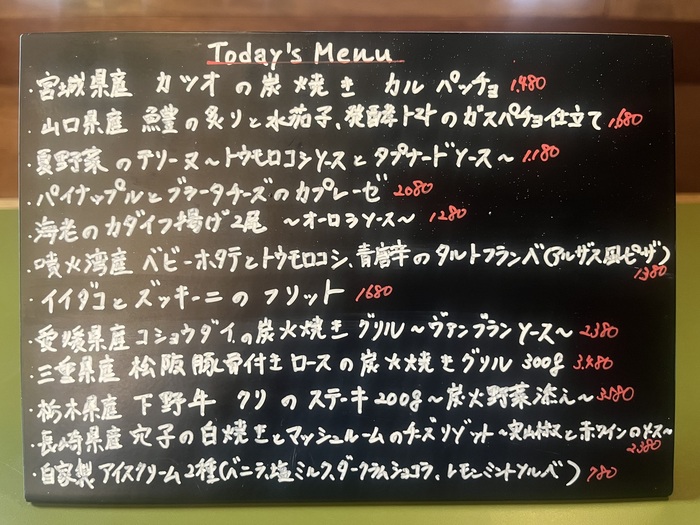 Today's Menu
・宮城県産 カツオの炭火焼き カルパッチョ 1,480
・山口県産 鱧の炙りと水茄子、発酵トマトのガスパチョ仕立て 1,680
・夏野菜のテリーヌ～トウモロコシソースとタプナードソース～ 1,180
・パイナップルとブラータチーズのカプレーゼ 2080
・海老のカダイフ揚げ2尾 ～オーロラソース～ 1280
・噴火湾産 ベビーホタテとトウモロコシ、青唐辛のタルトフランベ(アルザス風ピザ) 1380
・イイダコとズッキーニのフリット 1680
・愛媛県産コショウダイの炭火焼きグリル～ヴァンブランソース～ 2,380
・三重県産 松阪豚骨付きロースの炭火焼きグリル 300g 3,480
・栃木県産 下野牛 クリのステーキ200g～炭火野菜添え～ 3,580
・長崎県産 穴子の白焼きとマッシュルームのチーズリゾット～実山椒と赤ワインのソース～ 2380
・自家製 アイスクリーム2種(バニラ、塩ミルク、ダークラムショコラ、レモンミントソルベ) 780